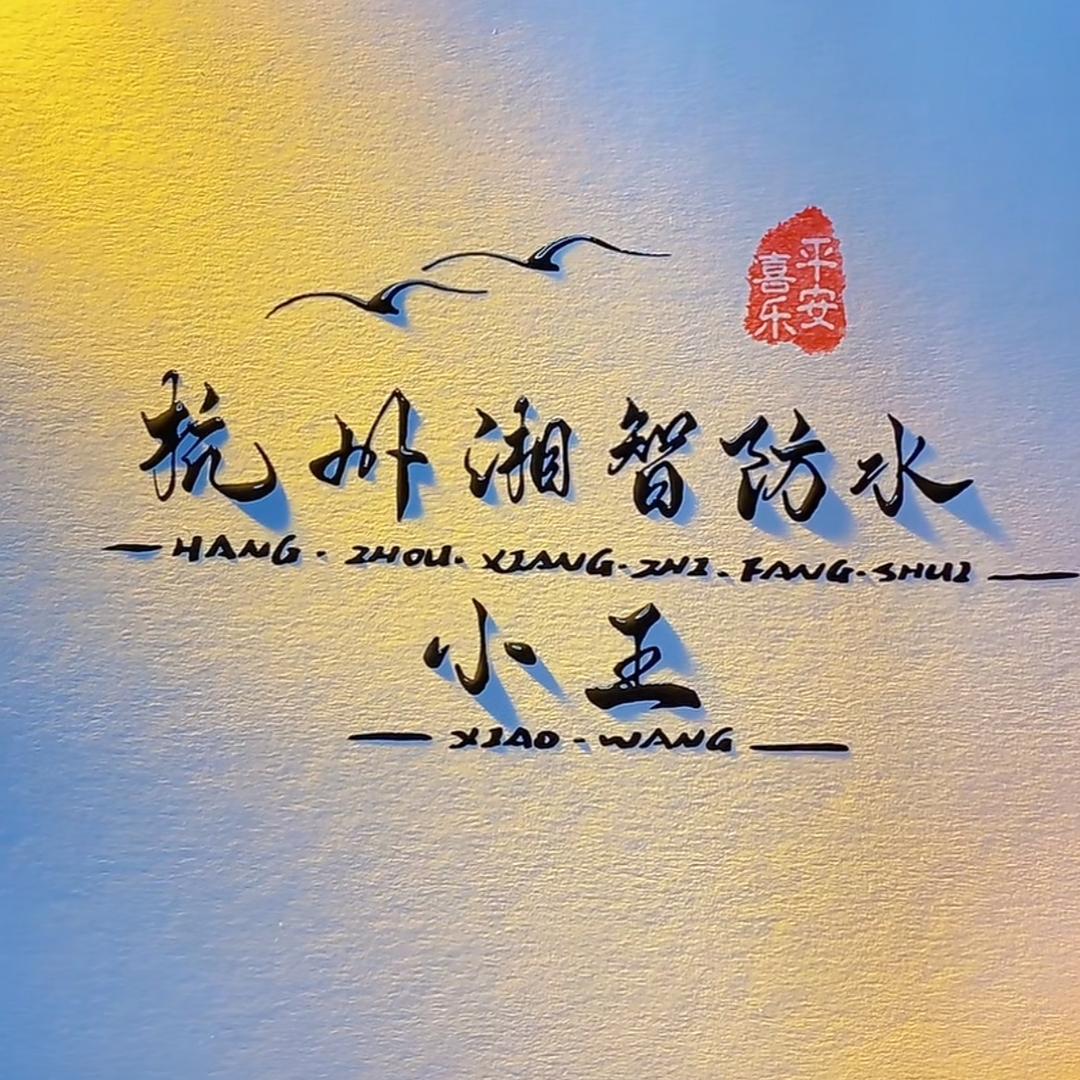 平安
喜乐
杭州湘智防水
HANG·ZHOU·XIANG·ZHI·FANG·SHUI
小王
XIAO-WANG